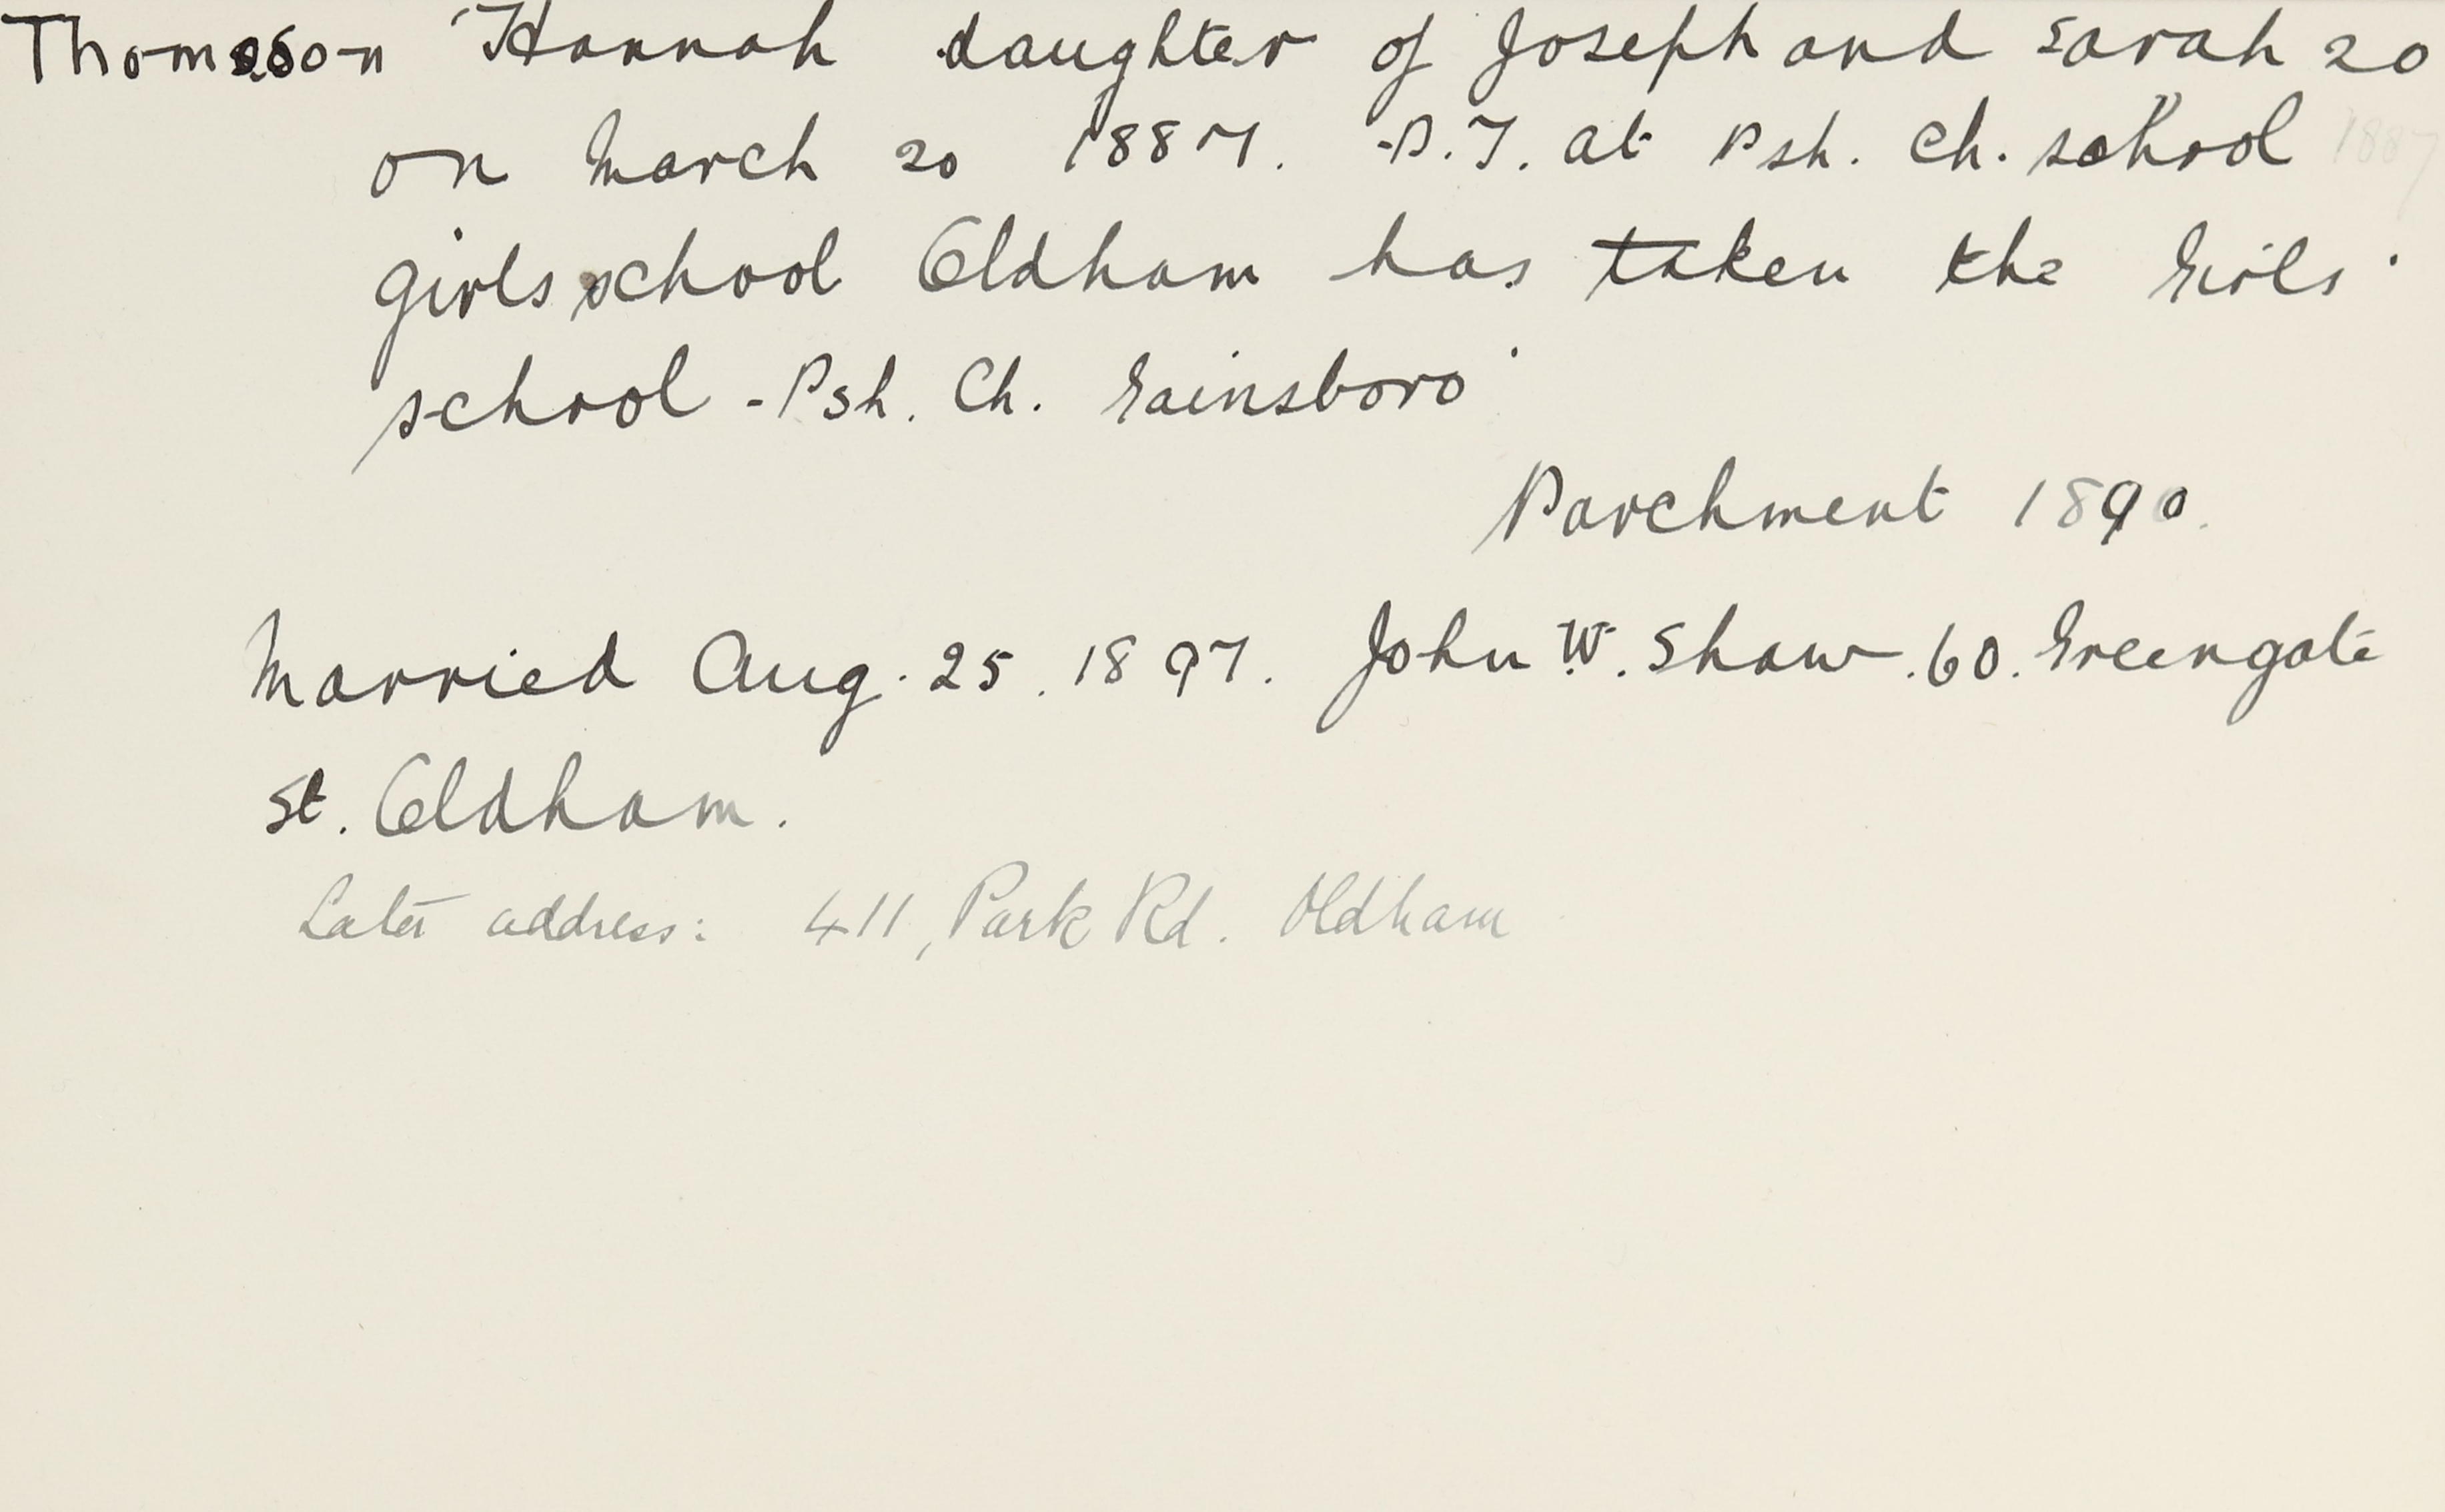 Thomason Hannah daughter of Joseph and Sarah 20
on March 20 1887. P.T. at Psh. Ch. school 1887
girls school Oldham has taken the Girls'
school - Psh. Ch. Gainsboro'
Parchment 1890.
Married Aug. 25. 1897. John W. Shaw. 60. Greengate
St. Oldham.
Later address: 411, Park Rd. Oldham